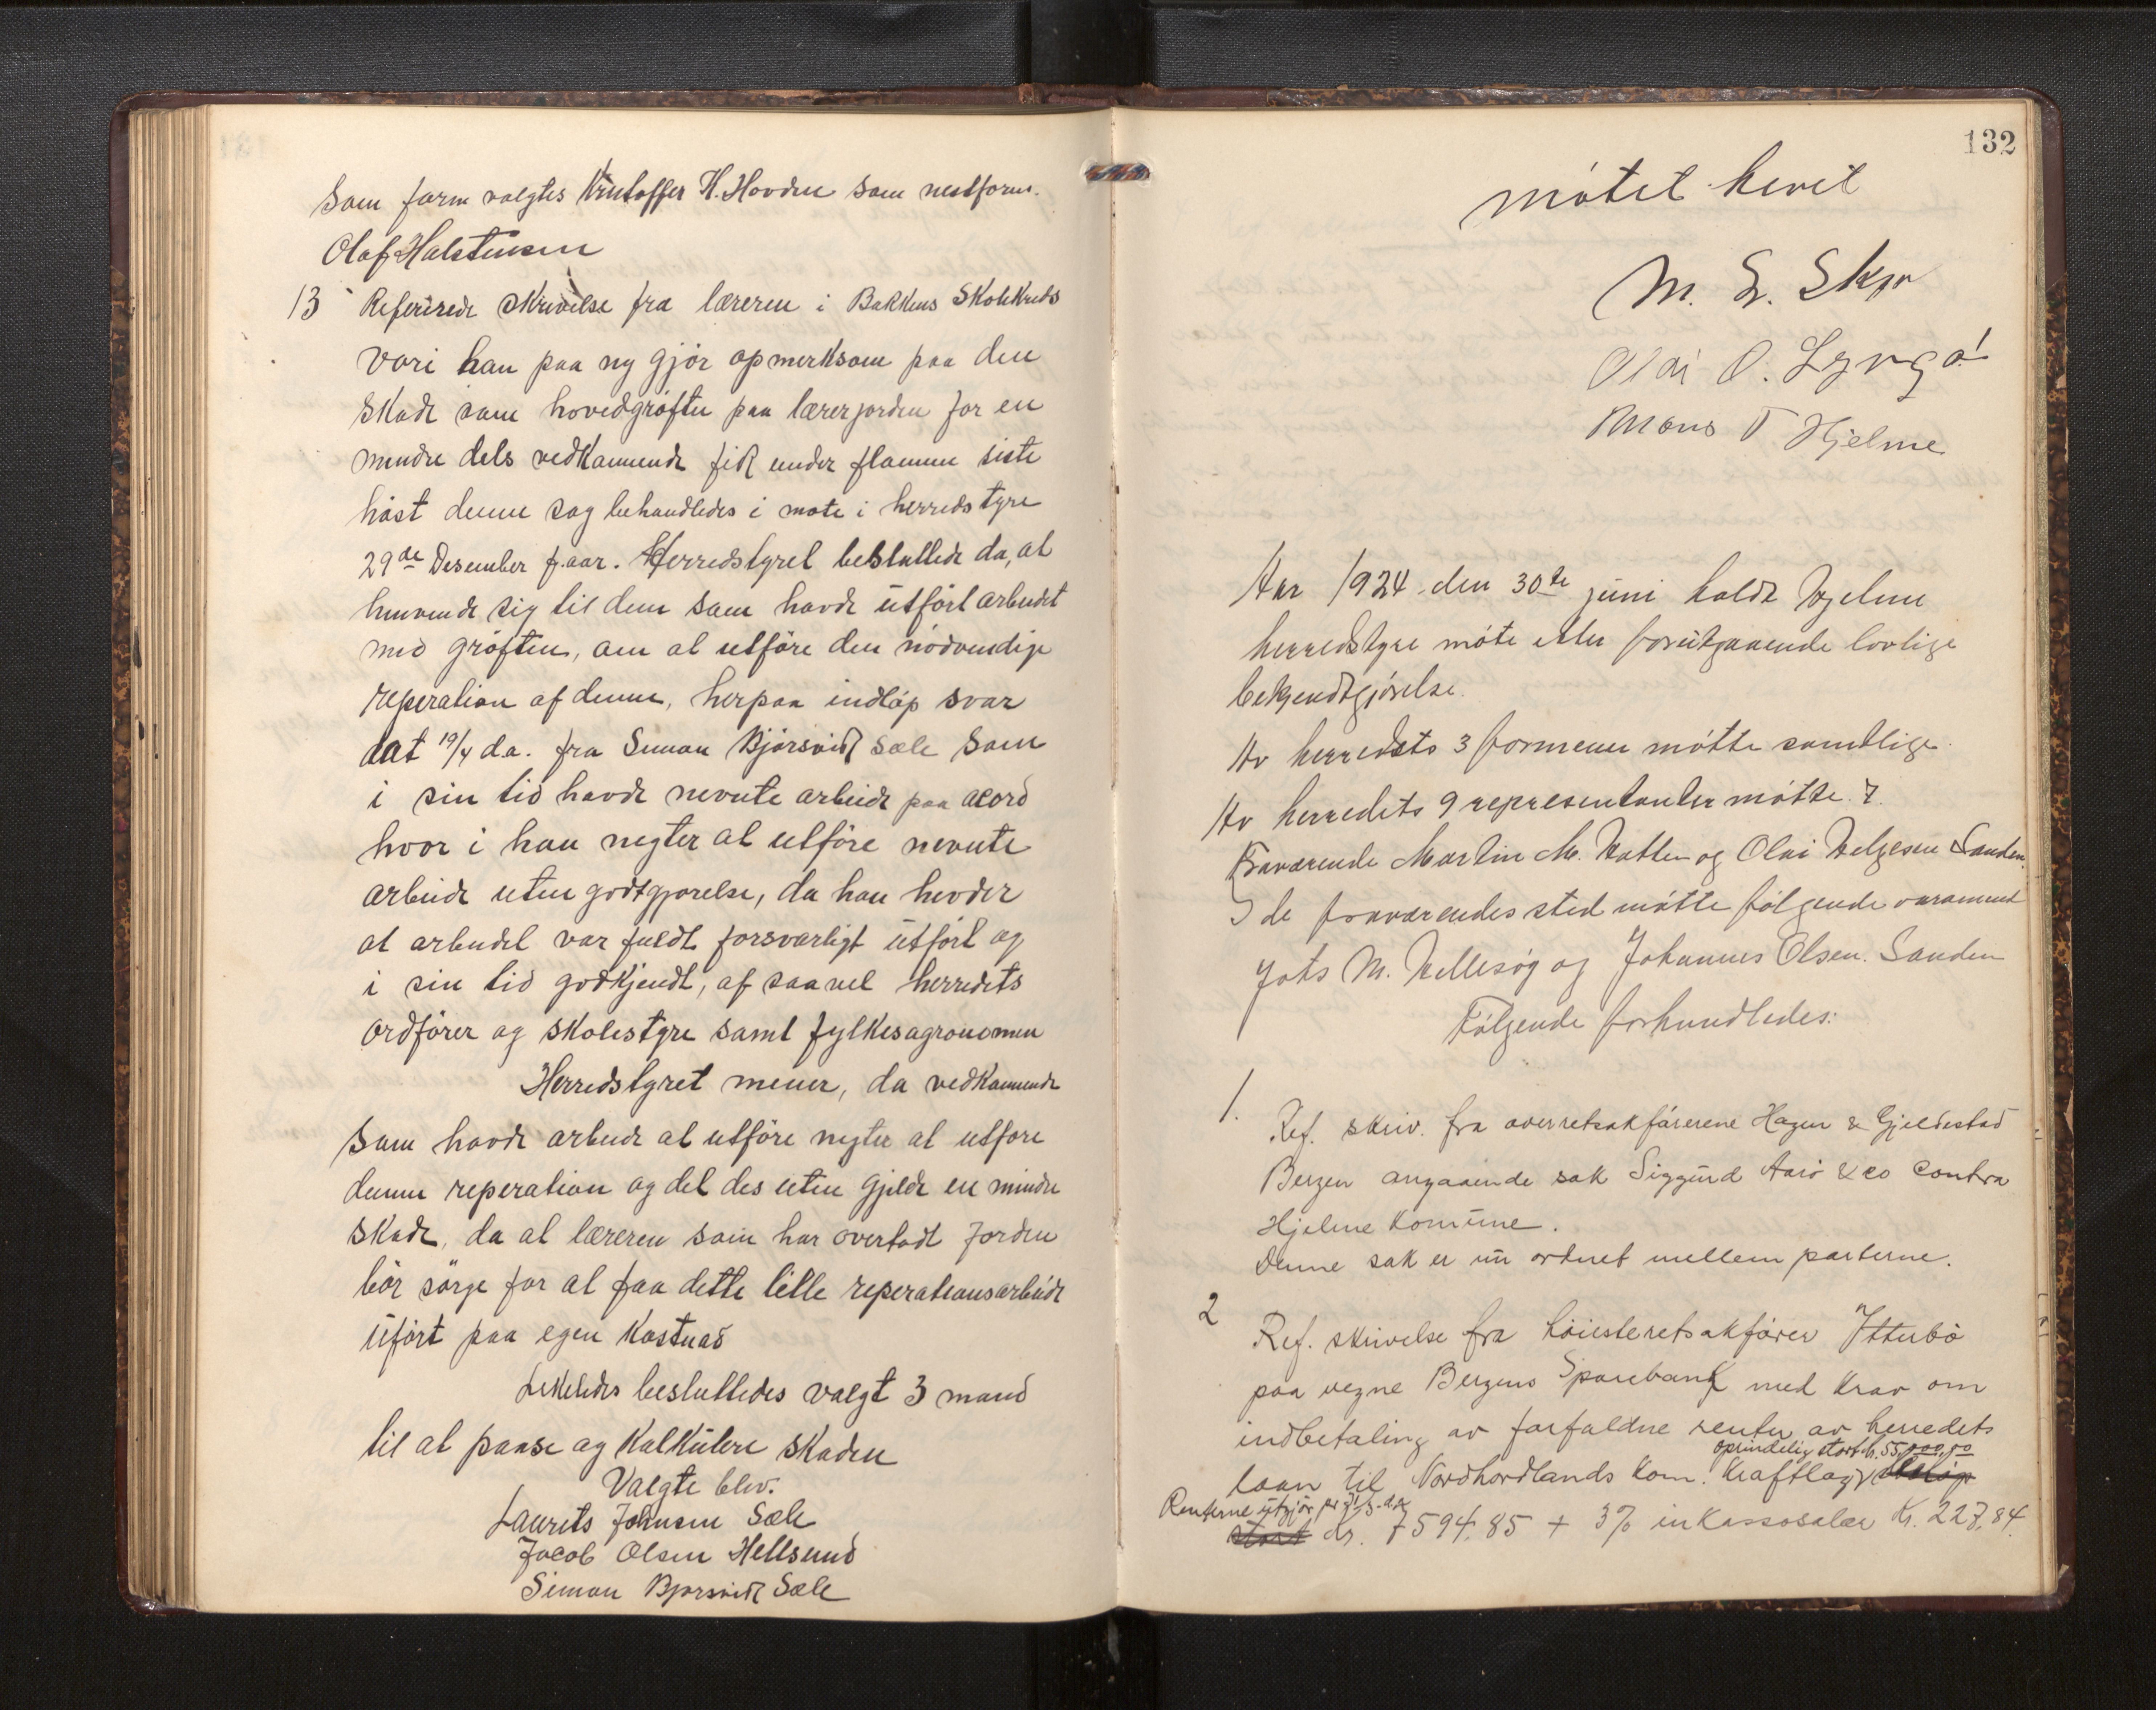 Som form valgtes Kristoffer H. Hovden som nestform.
Olaf Halstensen
13 Refererede skrivelse fra læreren i Bakkens Skolekreds
vori han paa ny gjør opmerksom paa den
skade som hovedgrøften paa lærerjorden for en
mindre dels vedkommende fik under flommen siste
høst denne sag behandledes i møte i herredstyre
29de Desember f.aar. Herredstyret besluttede da, at
henvende sig til dem som havde utført arbeidet
med grøften, om at utføre den nødvendige
reperation af denne, herpaa indløp svar
dat 19/4 d.a. fra Simon Bjørsvik Sæle som
i sin tid havde nevnte arbeide paa acord
hvor i han negter at utføre nevnte
arbeide uten godtgjørelse, da han hevder
at arbeidet var fuldt forsvarligt utført og
i sin tid godkjendt, af saavel herredets
ordfører og skolestyre samt fylkesagronomen
Herredstyret mener, da vedkommende
som havde arbeide at utføre negter at utføre
denne reperation og det des uten gjelde en mindre
skade, da at læreren som har overtadt jorden
bør sørge for at faa dette lille reperationsarbeide
uført paa egen kostnad
Likeledes besluttedes valgt 3 mand
til at paase og kalkulere skaden
Valgte blev:
Laurits Johnsen Sæle
Jacob Olsen Hellsund
Simon Bjørsvik Sæle
132
møtet hevet
M. L. Skjør
Olai O. Lyngø
Mons T Hjelme
Aar 1924 den 30te juni holdt Hjelme
herredstyre møte etter forutgaaende lovlige
bekjendtgjørelse.
Av herredets 3 formenn møtte samtlige.
Av herredets 9 representanter møtte 7.
Fraværende Martin M. Hatten og Olai Helgesen Sanden.
I de fraværendes sted møtte følgende varamend
Jots M. Hellesøy og Johannes Olsen. Sanden
Følgende forhandledes:
1. Ref. skriv. fra overretsakførerene Hagen & Gjeldestad
Bergen angaaende sak Siggurd Aarø & co contra
Hjelme komune.
Denne sak er nu ordnet mellem parterne.
2 Ref. skrivelse fra høiesteretsakfører Ytterbø
paa vegne Bergens Sparebank med krav om
indbetaling av forfaldne renter av herredets
oprindelig stort kr. 55,000,00
laan til Nordhordlands kom. Kraftlag
Renterne utgjør pr 31/5 d.a.
stort kr. 7594,85 + 3% inkassosalær kr. 227,84.